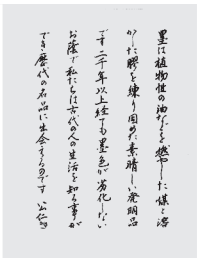 墨は植物性の油などを燃やした煤と溶
かした膠を練り固めた素晴しい発明品
です二千年以上経ても墨色が劣化しない
お蔭で私たちは古代の人の生活を知る事が
でき歴代の名品に出会えるのです 公仁